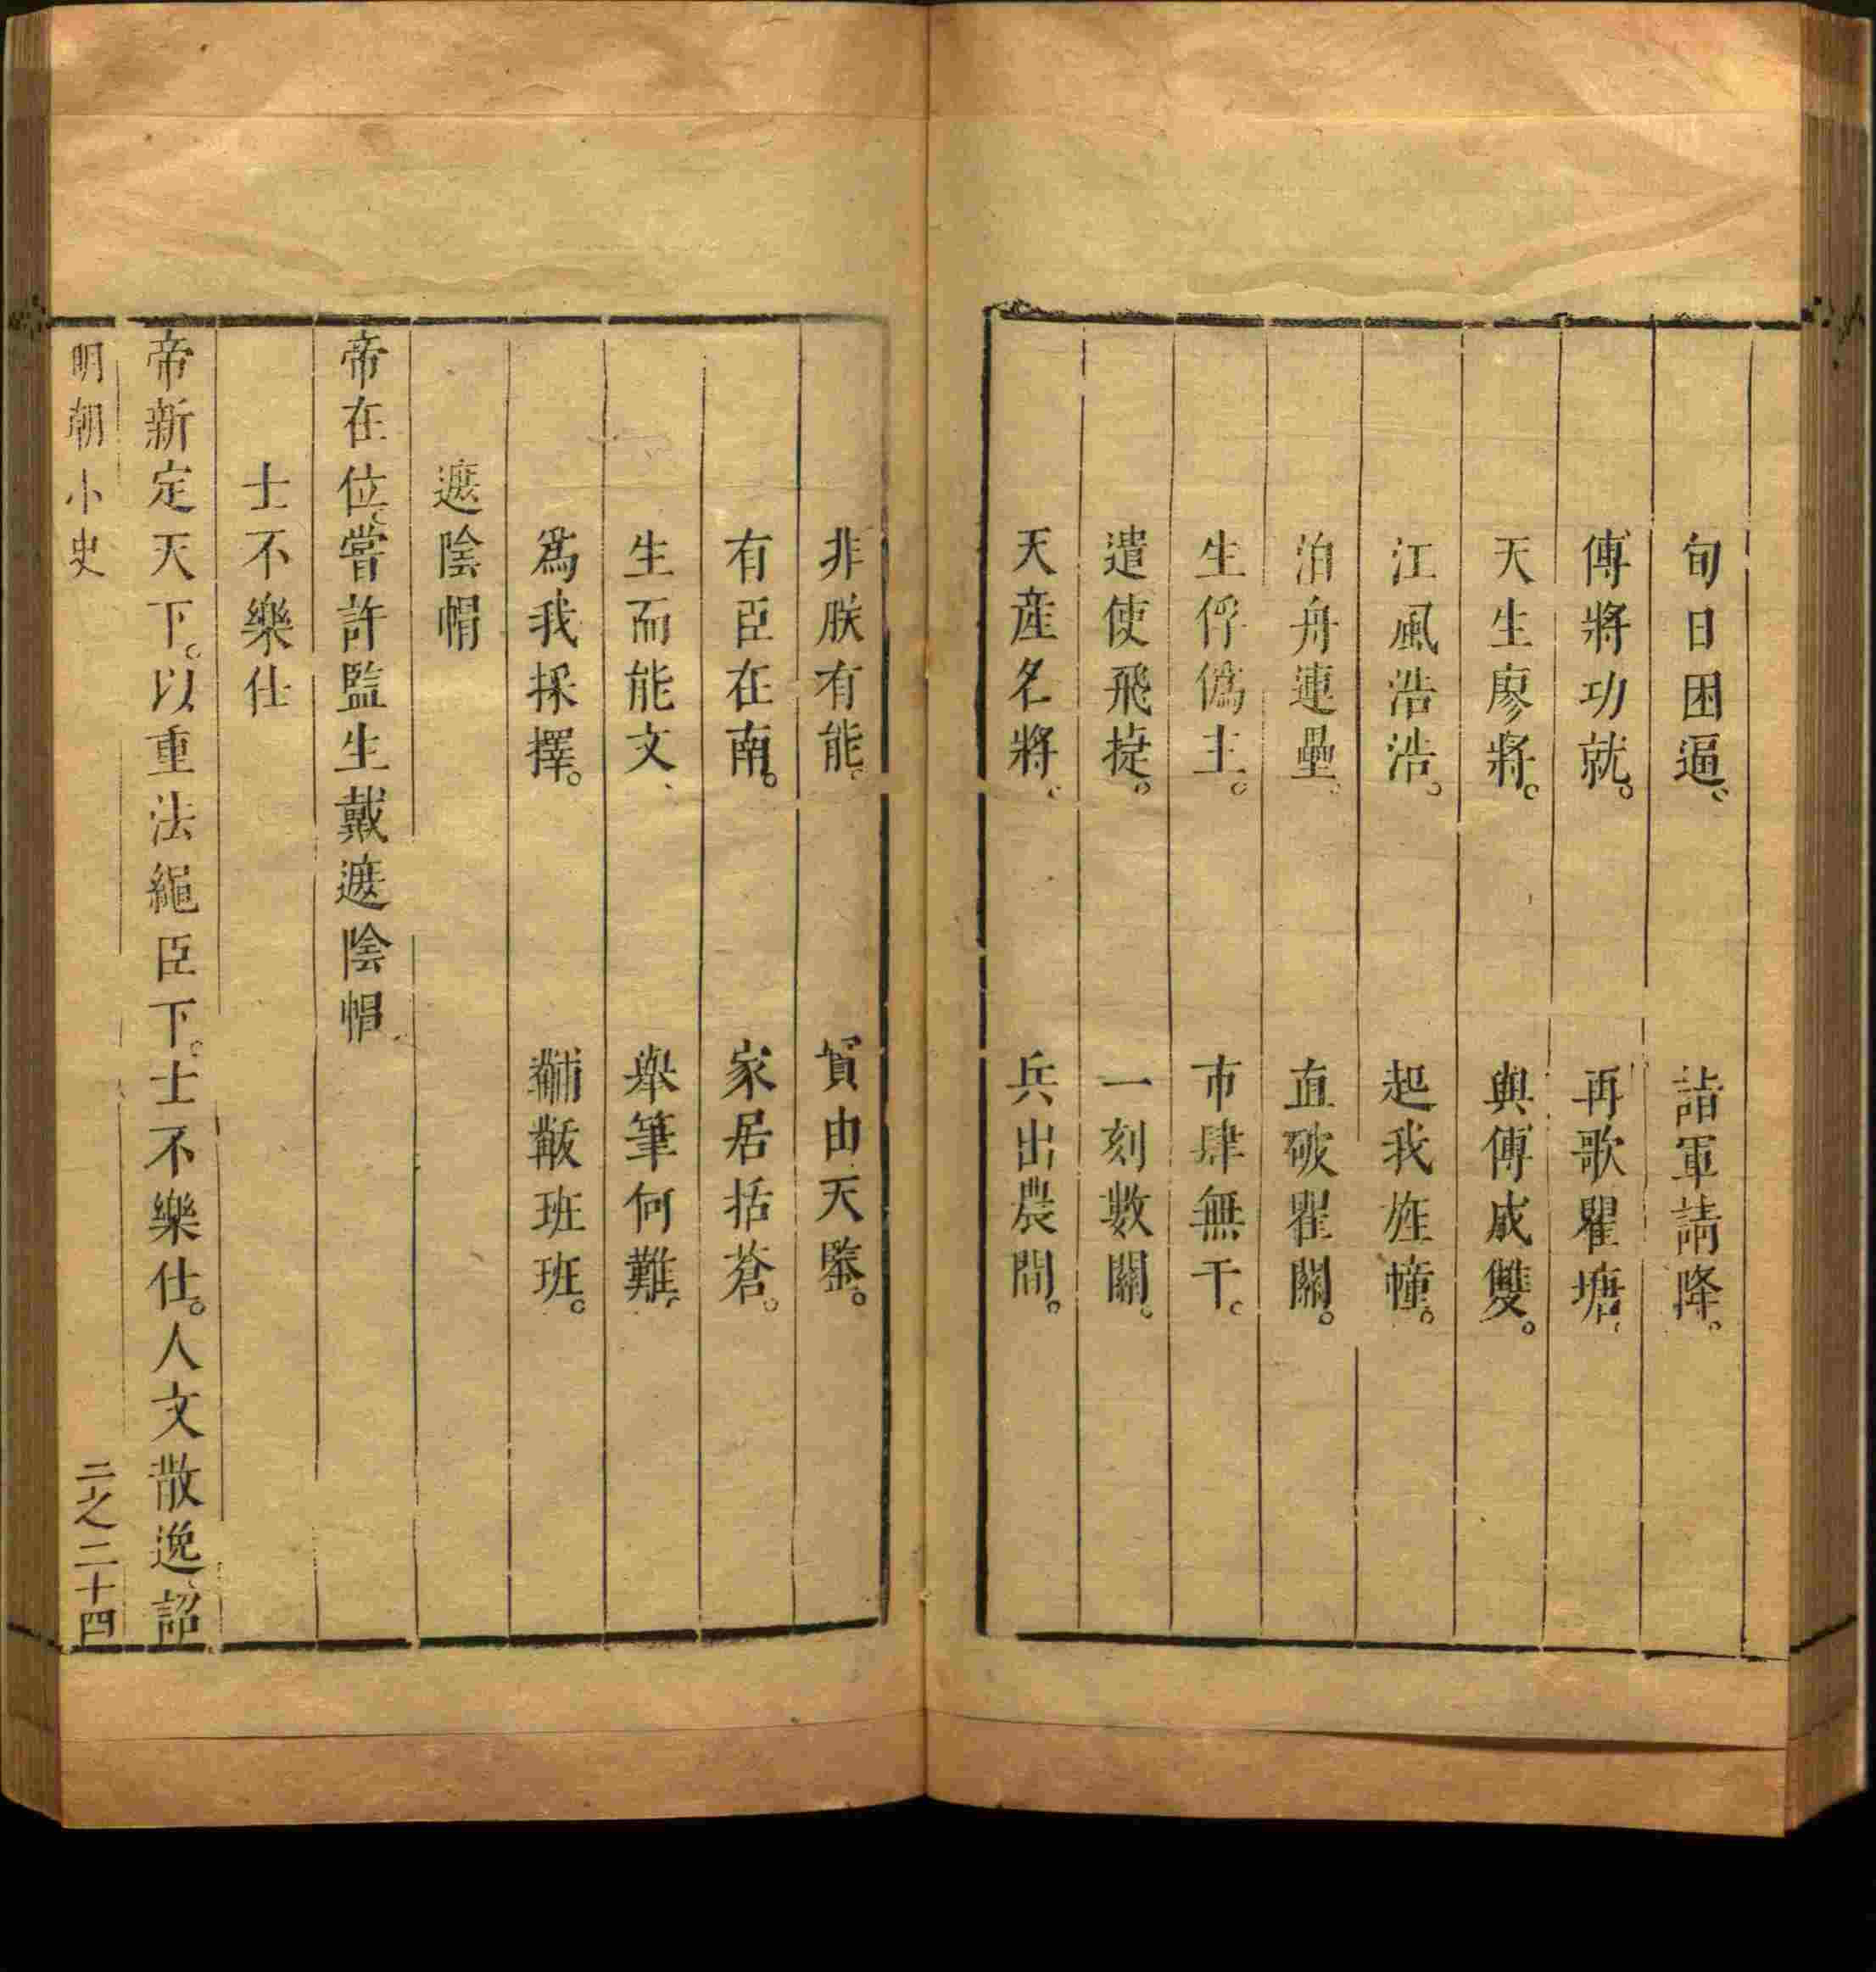 旬日困逼。　詣軍請降。
傅將功就。　再歌瞿塘。
天生廖將。　與傅成雙。
江風浩浩。　起我旌幢。
泊舟連壘。　直破瞿關。
生俘僞主。　市肆無干。
遣使飛㨗。　一刻數關。
天產名將。　兵出農間。
非朕有能。　實由天鑒。
有臣在南。　家居括蒼。
生而能文、　舉筆何難。
爲我採擇。　黼黻班班。
遮陰帽
帝在位。嘗許監生戴遮陰帽
士不樂仕
帝新定天下。以重法繩臣下。士不樂仕。人文散逸、詔
明朝小史　二之二十四